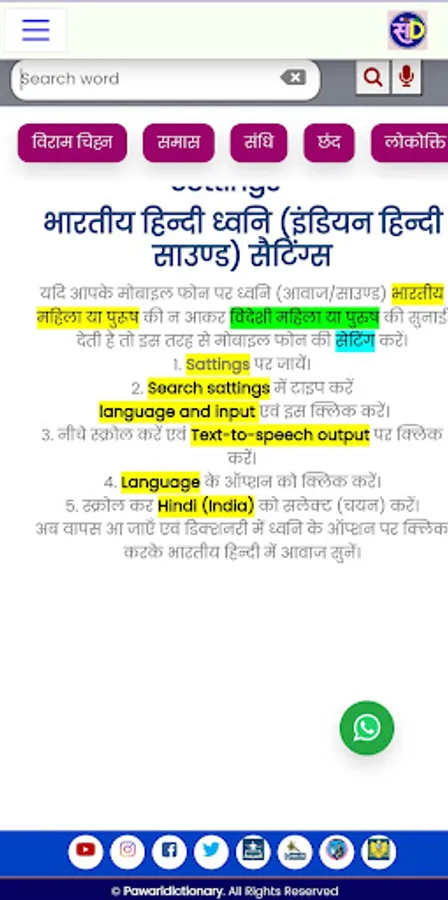 संD
Search word
विराम चिह्न समास संधि छंद लोकोक्ति
Settings
भारतीय हिन्दी ध्वनि (इंडियन हिन्दी
साउण्ड) सैटिंग्स
यदि आपके मोबाइल फोन पर ध्वनि (आवाज/साउण्ड) भारतीय
महिला या पुरूष की न आकर विदेशी महिला या पुरुष की सुनाई
देती है तो इस तरह से मोबाइल फोन की सेटिंग करें।
1. Sattings पर जायें।
2. Search sattings में टाइप करें
language and input एवं इस क्लिक करें।
3. नीचे स्क्रोल करें एवं Text-to-speech output पर क्लिक
करें।
4. Language के ऑप्शन को क्लिक करें।
5. स्क्रोल कर Hindi (India) को सलेक्ट (चयन) करें।
अब वापस आ जाएँ एवं डिक्शनरी में ध्वनि के ऑप्शन पर क्लिक
करके भारतीय हिन्दी में आवाज सुनें।
© Pawaridictionary. All Rights Reserved